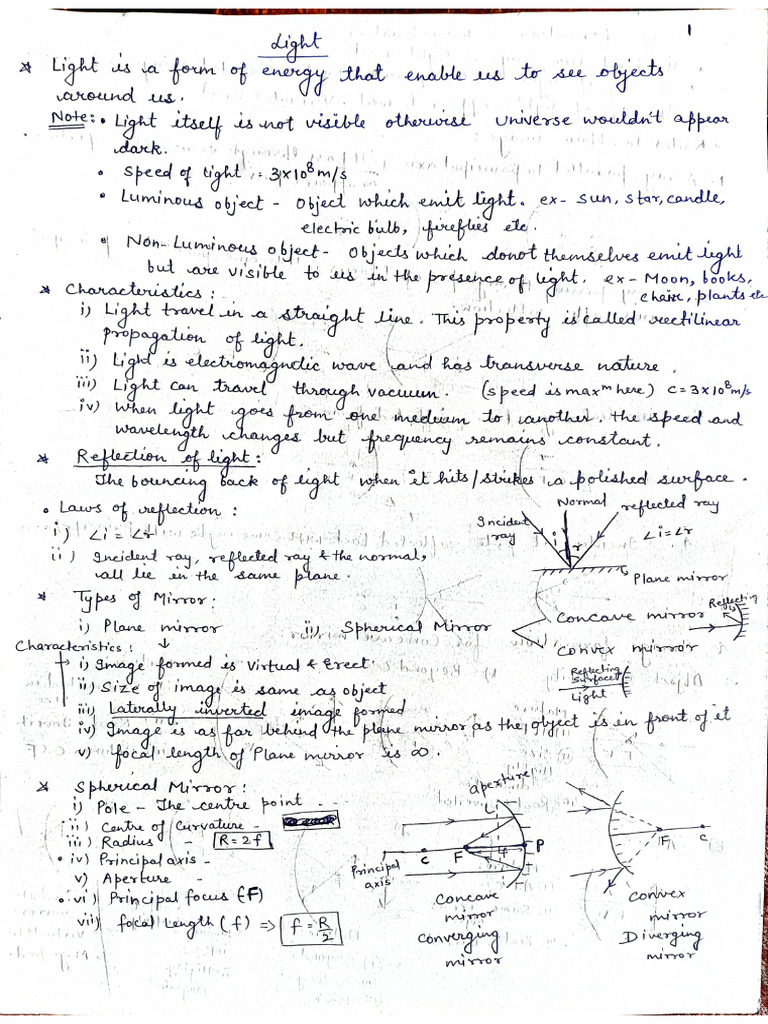 1
Light
* Light is a form of energy that enable us to see objects
around us.
Note: • Light itself is not visible otherwise universe wouldn't appear
dark.
• Speed of light = 3×10⁸ m/s
• Luminous object - Object which emit light. ex- Sun, star, candle,
electric bulb, fireflies etc.
• Non-Luminous object- Objects which donot themselves emit light
but are visible to us in the presence of light. ex- Moon, books,
chair, plants etc
* Characteristics:
i) Light travel in a straight line. This property is called rectilinear
propagation of light.
ii) Light is electromagnetic wave and has transverse nature.
iii) Light can travel through vacuum. (speed is maxᵐ here) C = 3×10⁸ m/s
iv) When light goes from one medium to another, the speed and
wavelength changes but frequency remains constant.
* Reflection of light:
The bouncing back of light when it hits/strikes a polished surface.
• Laws of reflection:
i) ∠i = ∠r
ii) Incident ray, reflected ray & the normal,
all lie in the same plane.
Normal
reflected ray
Incident
ray
i
r
∠i=∠r
Plane mirror
* Types of Mirror:
i) Plane mirror ii) Spherical Mirror
Concave mirror
Reflecting
Convex mirror
Reflecting
Surface
Light
Characteristics:
i) Image formed is Virtual & Erect.
ii) Size of image is same as object
iii) Laterally inverted image formed
iv) Image is as far behind the plane mirror as the object is in front of it
v) focal length of Plane mirror is ∞.
* Spherical Mirror:
i) Pole - The centre point
ii) Centre of Curvature -
iii) Radius - R=2f
• iv) Principal axis -
v) Aperture -
• vi) Principal focus (F)
vii) focal Length (f) => f = R/2
aperture
C
F
f
P
Principal
axis
Concave
mirror
Converging
mirror
F
C
Convex
mirror
Diverging
mirror